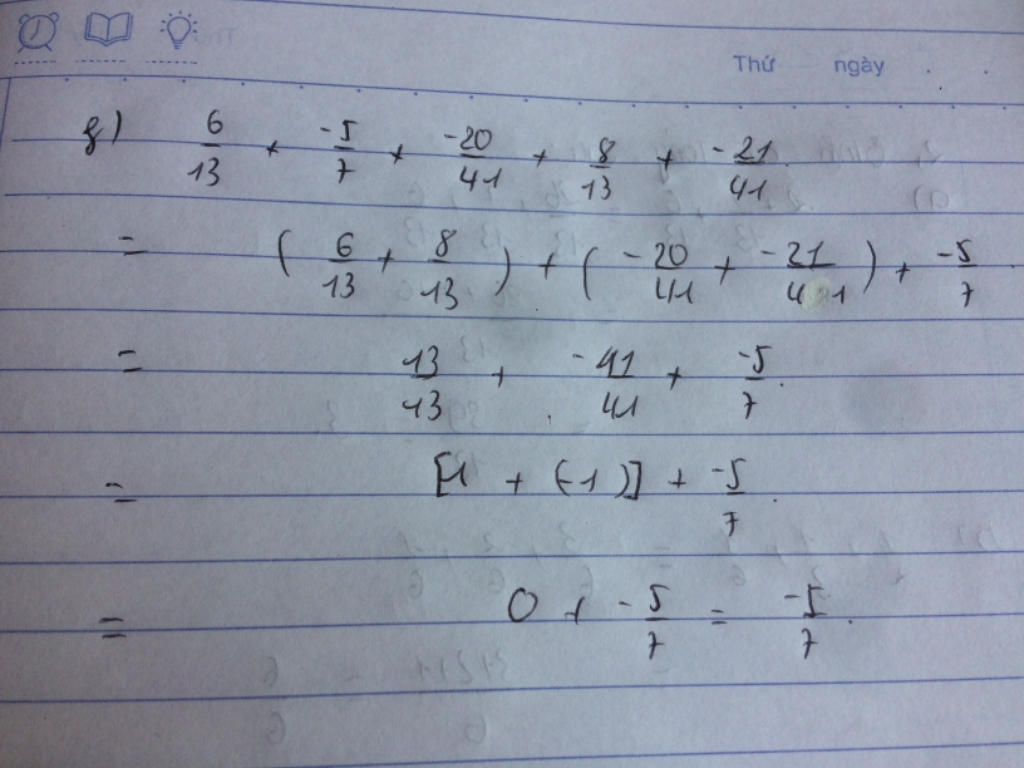 Thứ ngày
g) 6/13 + -5/7 + -20/41 + 8/13 + -21/41
= (6/13 + 8/13) + (-20/41 + -21/41) + -5/7
= 13/13 + -41/41 + -5/7
= [1 + (-1)] + -5/7
= 0 + -5/7 = -5/7